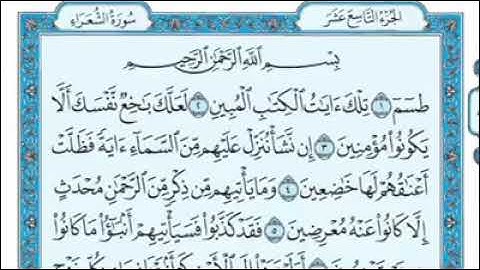 الجزء التاسع عشر
سورة الشعراء
بِسْمِ اللَّهِ الرَّحْمَٰنِ الرَّحِيمِ
طسٓمٓ ١ تِلْكَ ءَايَٰتُ الْكِتَٰبِ الْمُبِينِ ٢ لَعَلَّكَ بَٰخِعٌ نَّفْسَكَ أَلَّا
يَكُونُوا۟ مُؤْمِنِينَ ٣ إِن نَّشَأْ نُنَزِّلْ عَلَيْهِم مِّنَ السَّمَآءِ ءَايَةً فَظَلَّتْ
أَعْنَٰقُهُمْ لَهَا خَٰضِعِينَ ٤ وَمَا يَأْتِيهِم مِّن ذِكْرٍ مِّنَ الرَّحْمَٰنِ مُحْدَثٍ
إِلَّا كَانُوا۟ عَنْهُ مُعْرِضِينَ ٥ فَقَدْ كَذَّبُوا۟ فَسَيَأْتِيهِمْ أَنۢبَٰٓؤُا۟ مَا كَانُوا۟